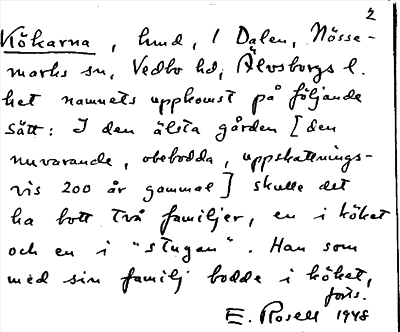 2
Kökarna, hmd, i Dalen, Nösse-
marks sn, Vedbo hd, Älvsborgs l.
het namnets uppkomst på följande
sätt: I den älsta gården [den
nuvarande, obebodda, uppskattnings-
vis 200 år gammal] skulle det
ha bott två familjer, en i köket
och en i "stugan". Han som
med sin familj bodde i köket,
forts.
E. Rosell 1948